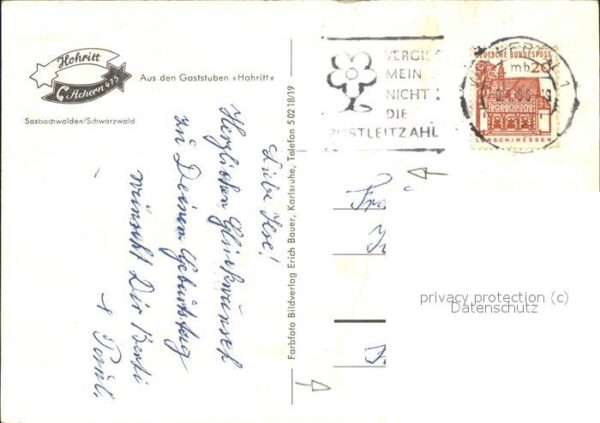 Hohritt
Achern 475
Sasbachwalden/Schwarzwald
Aus den Gaststuben »Hohritt«
Liebe Ilse!
Herzlichen Glückwunsch
zu Deinem Geburtstag
wünscht Dir Berti
Farbfoto Bildverlag Erich Bauer, Karlsruhe, Telefon 50218/19
VERGISS
MEIN
NICHT
DIE
POSTLEITZAHL
DEUTSCHE BUNDESPOST
20
mb
LORSCH/HESSEN
Fr
privacy protection (c)
Datenschutz